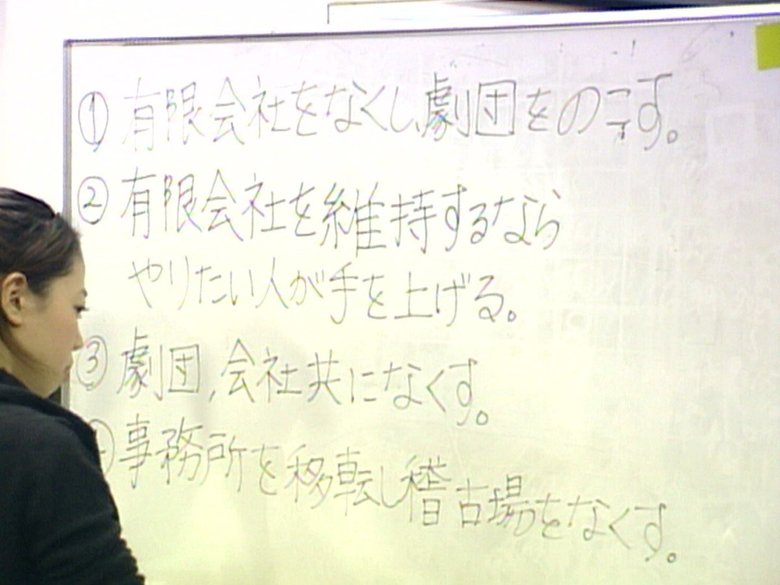 ① 有限会社をなくし劇団をのこす。
② 有限会社を維持するなら
やりたい人が手を上げる。
③ 劇団、会社共になくす。
事務所を移転し稽古場をなくす。